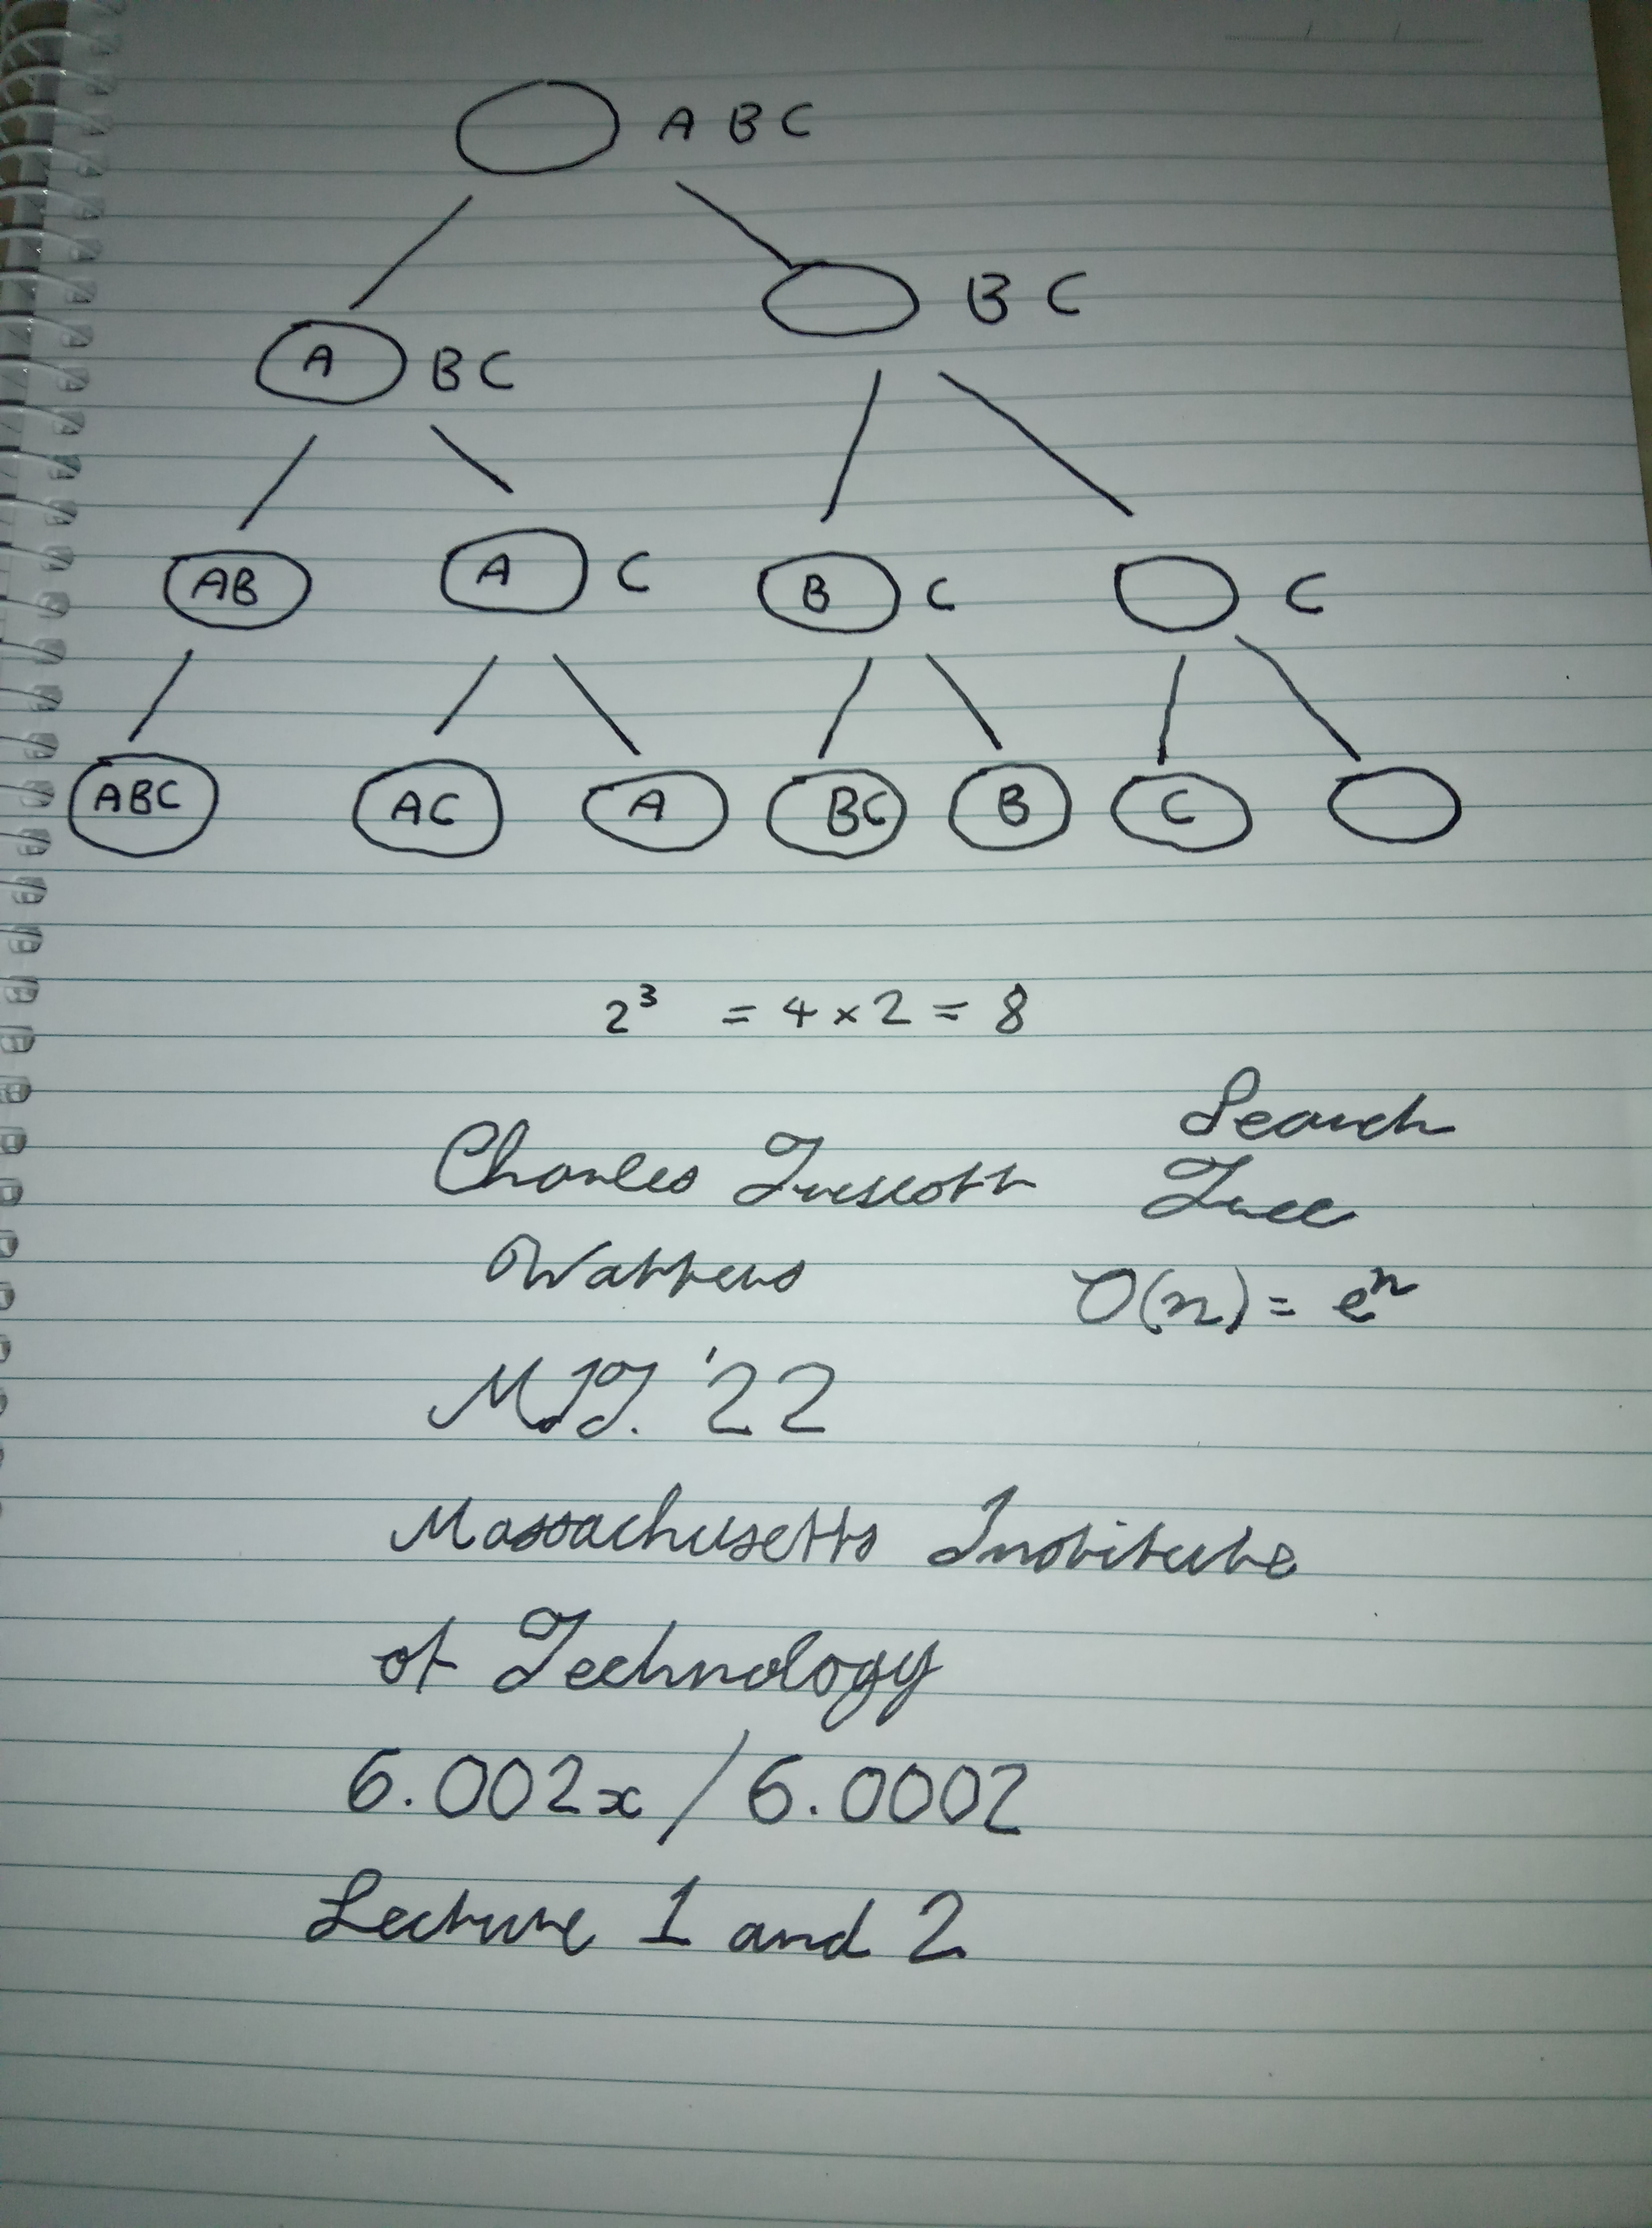 A B C
B C
A B C
AB A C B C C
ABC AC A BC B C
2³ = 4 × 2 = 8
Search
Charles Truscott Tree
Watters
O(n) = eⁿ
M.I.T. '22
Massachusetts Institute
of Technology
6.002x / 6.0002
Lecture 1 and 2